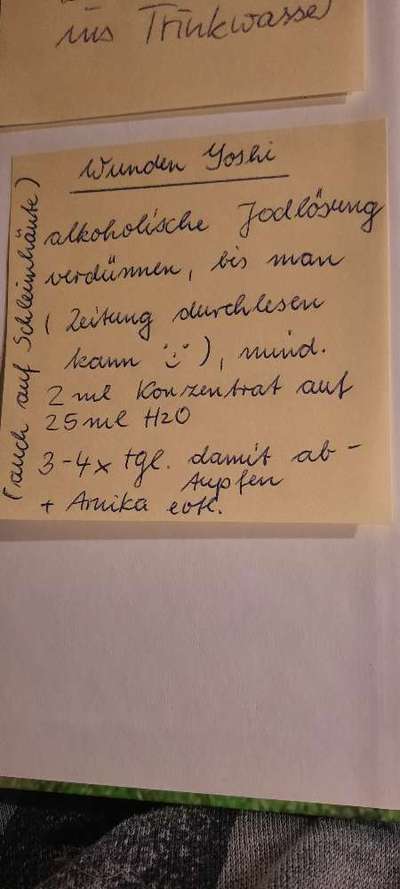 ins Trinkwasser
Wunden Yoshi
alkoholische Jodlösung
verdünnen, bis man
( Zeitung durchlesen
kann ), mind.
2 ml Konzentrat auf
25 ml H2O
3-4x tgl. damit ab-
tupfen
+ Arnika evtl.
(auch auf Schleimhäute)